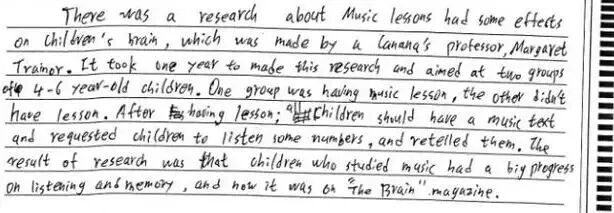 There was a research about Music lessons had some effects
on children's brain, which was made by a Canana's professor, Margaret
Trainor. It took one year to made this research and aimed at two groups
of 4-6 year-old children. One group was having music lesson, the other didn't
have lesson. After having lesson; all children should have a music text
and requested children to listen some numbers, and retelled them. The
result of research was that children who studied music had a big progress
on listening and memory, and now it was on "The Brain" magazine.